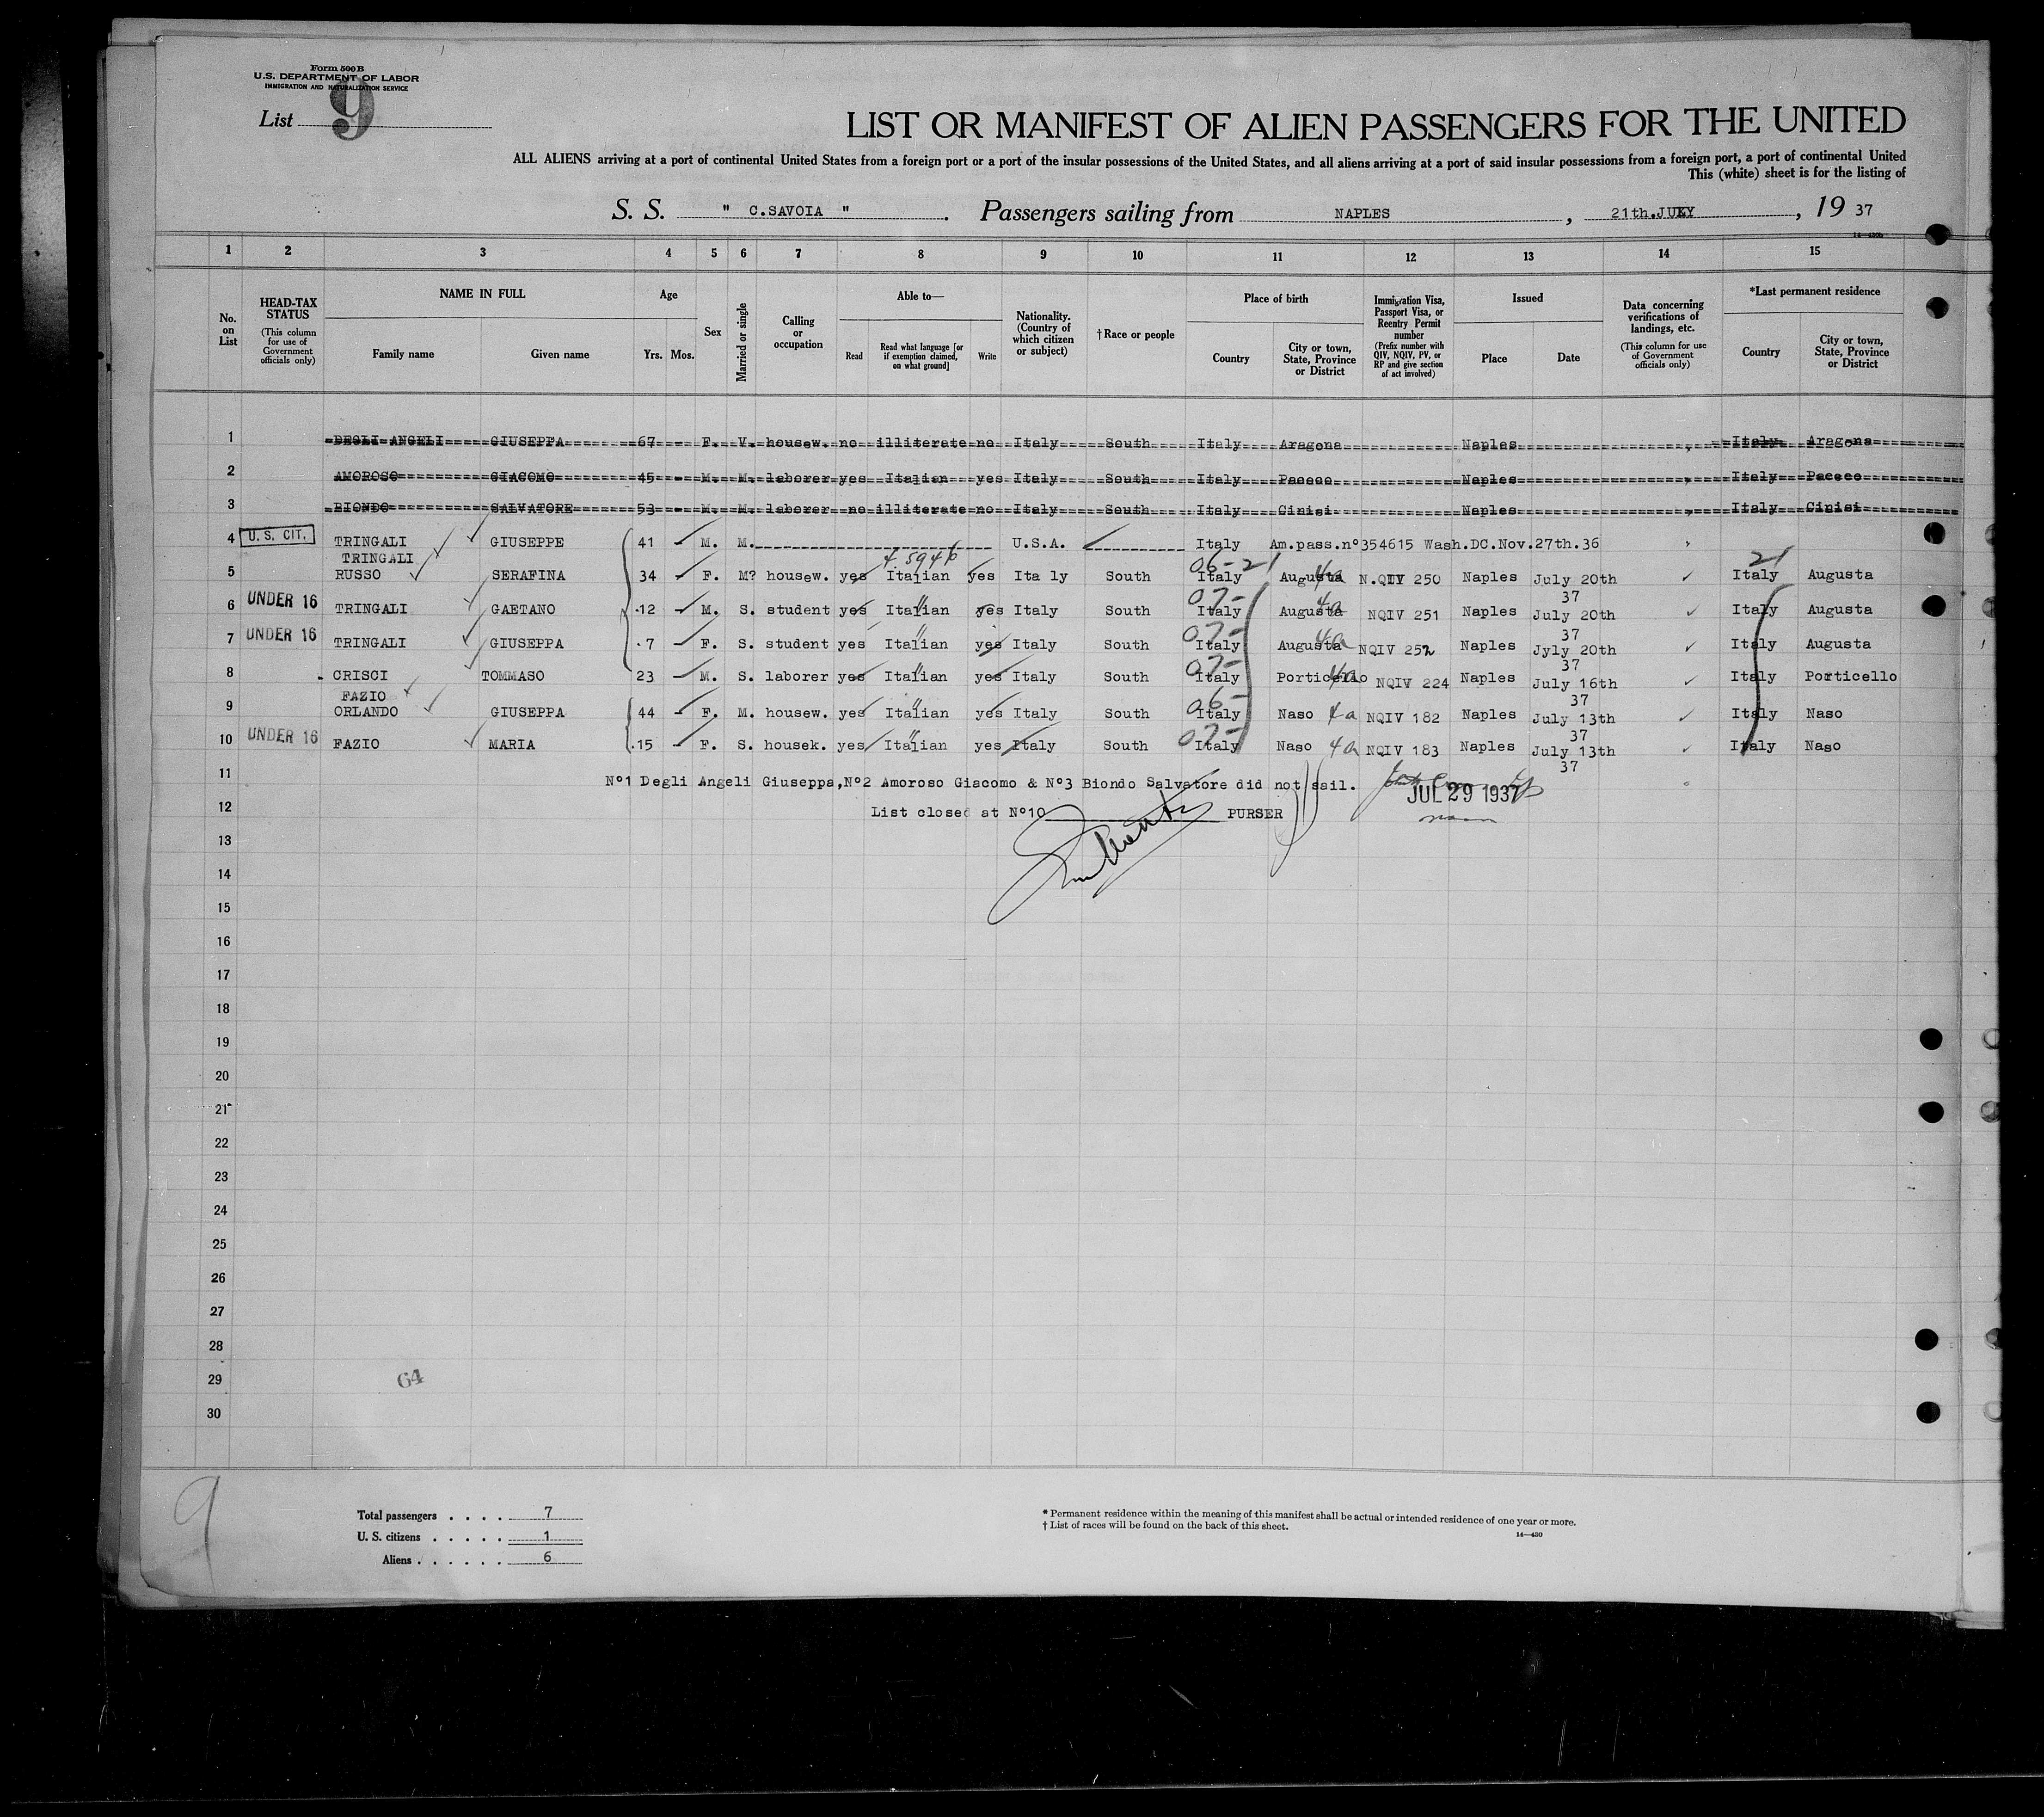 Form 500 B
U.S. DEPARTMENT OF LABOR
IMMIGRATION AND NATURALIZATION SERVICE
List 9
LIST OR MANIFEST OF ALIEN PASSENGERS FOR THE UNITED
ALL ALIENS arriving at a port of continental United States from a foreign port or a port of the insular possessions of the United States, and all aliens arriving at a port of said insular possessions from a foreign port, a port of continental United
This (white) sheet is for the listing of
S. S. " C.SAVOIA " . Passengers sailing from NAPLES , 21th.JULY , 19 37
14—430b
1 2 3 4 5 6 7 8 9 10 11 12 13 14 15
No. on List
HEAD-TAX STATUS (This column for use of Government officials only)
NAME IN FULL
Family name Given name
Age
Yrs. Mos.
Sex
Married or single
Calling or occupation
Able to—
Read Read what language [or if exemption claimed, on what ground] Write
Nationality. (Country of which citizen or subject)
† Race or people
Place of birth
Country City or town, State, Province or District
Immigration Visa, Passport Visa, or Reentry Permit number (Prefix number with QIV, NQIV, PV, or RP and give section of act involved)
Issued
Place Date
Data concerning verifications of landings, etc. (This column for use of Government officials only)
*Last permanent residence
Country City or town, State, Province or District
1 DEGLI ANGELI GIUSEPPA 67 - F. V. housew. no illiterate no Italy South Italy Aragona Naples Italy Aragona
2 AMOROSO GIACOMO 45 - M. M. laborer yes Italian yes Italy South Italy Paceco Naples Italy Paceco
3 BIONDO SALVATORE 53 - M. M. laborer no illiterate no Italy South Italy Cinisi Naples Italy Cinisi
4 U. S. CIT. TRINGALI GIUSEPPE 41 - M. M. U.S.A. Italy Am.pass.nº354615 Wash.DC.Nov.27th.36
TRINGALI
5 RUSSO SERAFINA 34 - F. M? housew. yes Italian yes Ita ly South 06-21 Italy Augusta 4a N.QIV 250 Naples July 20th 37 21 Italy Augusta
6 UNDER 16 TRINGALI GAETANO .12 - M. S. student yes Italian " yes Italy South 07- Italy Augusta 4a NQIV 251 Naples July 20th 37 Italy Augusta
7 UNDER 16 TRINGALI GIUSEPPA .7 - F. S. student yes Italian " yes Italy South 07- Italy Augusta 4a NQIV 252 Naples Jyly 20th 37 Italy Augusta
8 CRISCI TOMMASO 23 - M. S. laborer yes Italian " yes Italy South 07- Italy Porticello 4a NQIV 224 Naples July 16th 37 Italy Porticello
FAZIO
9 ORLANDO GIUSEPPA 44 - F. M. housew. yes Italian " yes Italy South 06- Italy Naso 4a NQIV 182 Naples July 13th 37 Italy Naso
10 UNDER 16 FAZIO MARIA .15 - F. S. housek. yes Italian " yes Italy South 07- Italy Naso 4a NQIV 183 Naples July 13th 37 Italy Naso
11 Nº1 Degli Angeli Giuseppa,Nº2 Amoroso Giacomo & Nº3 Biondo Salvatore did not sail.
JUL 29 1937
12 List closed at Nº10 PURSER
13
14
15
16
17
18
19
20
21
22
23
24
25
26
27
28
29
64
30
9
Total passengers . . . . 7
U. S. citizens . . . . . 1
Aliens . . . . . . 6
* Permanent residence within the meaning of this manifest shall be actual or intended residence of one year or more.
† List of races will be found on the back of this sheet.
14—430